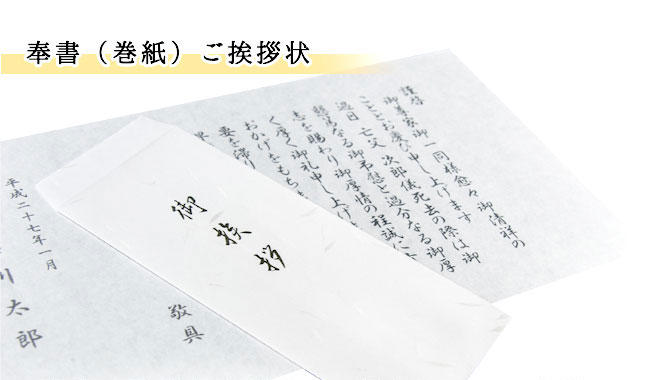 奉書（巻紙）ご挨拶状
謹啓
御尊家御一同様愈々御清祥の
こととお慶び申し上げます
過日 亡父 次郎儀死去の際は御
なる御弔慰と過分なる御厚
志を賜わり御厚情の程誠に
く厚く御礼申し上げ
おかげをもち
要を
敬具
平成二十七年一月
川太郎
御挨拶